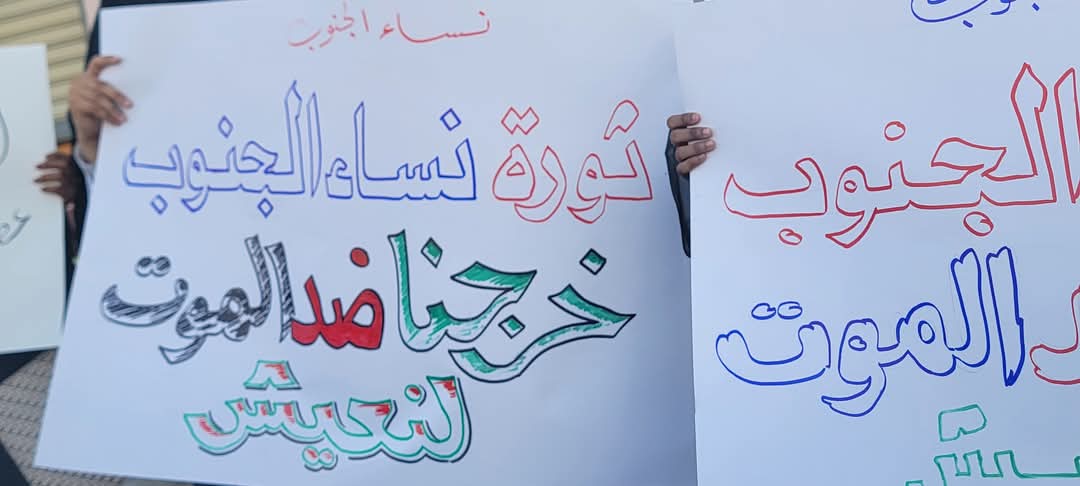 نساء الجنوب
ثورة نساء الجنوب
خرجنا ضد الموت
لنعيش
الجنوب
الموت